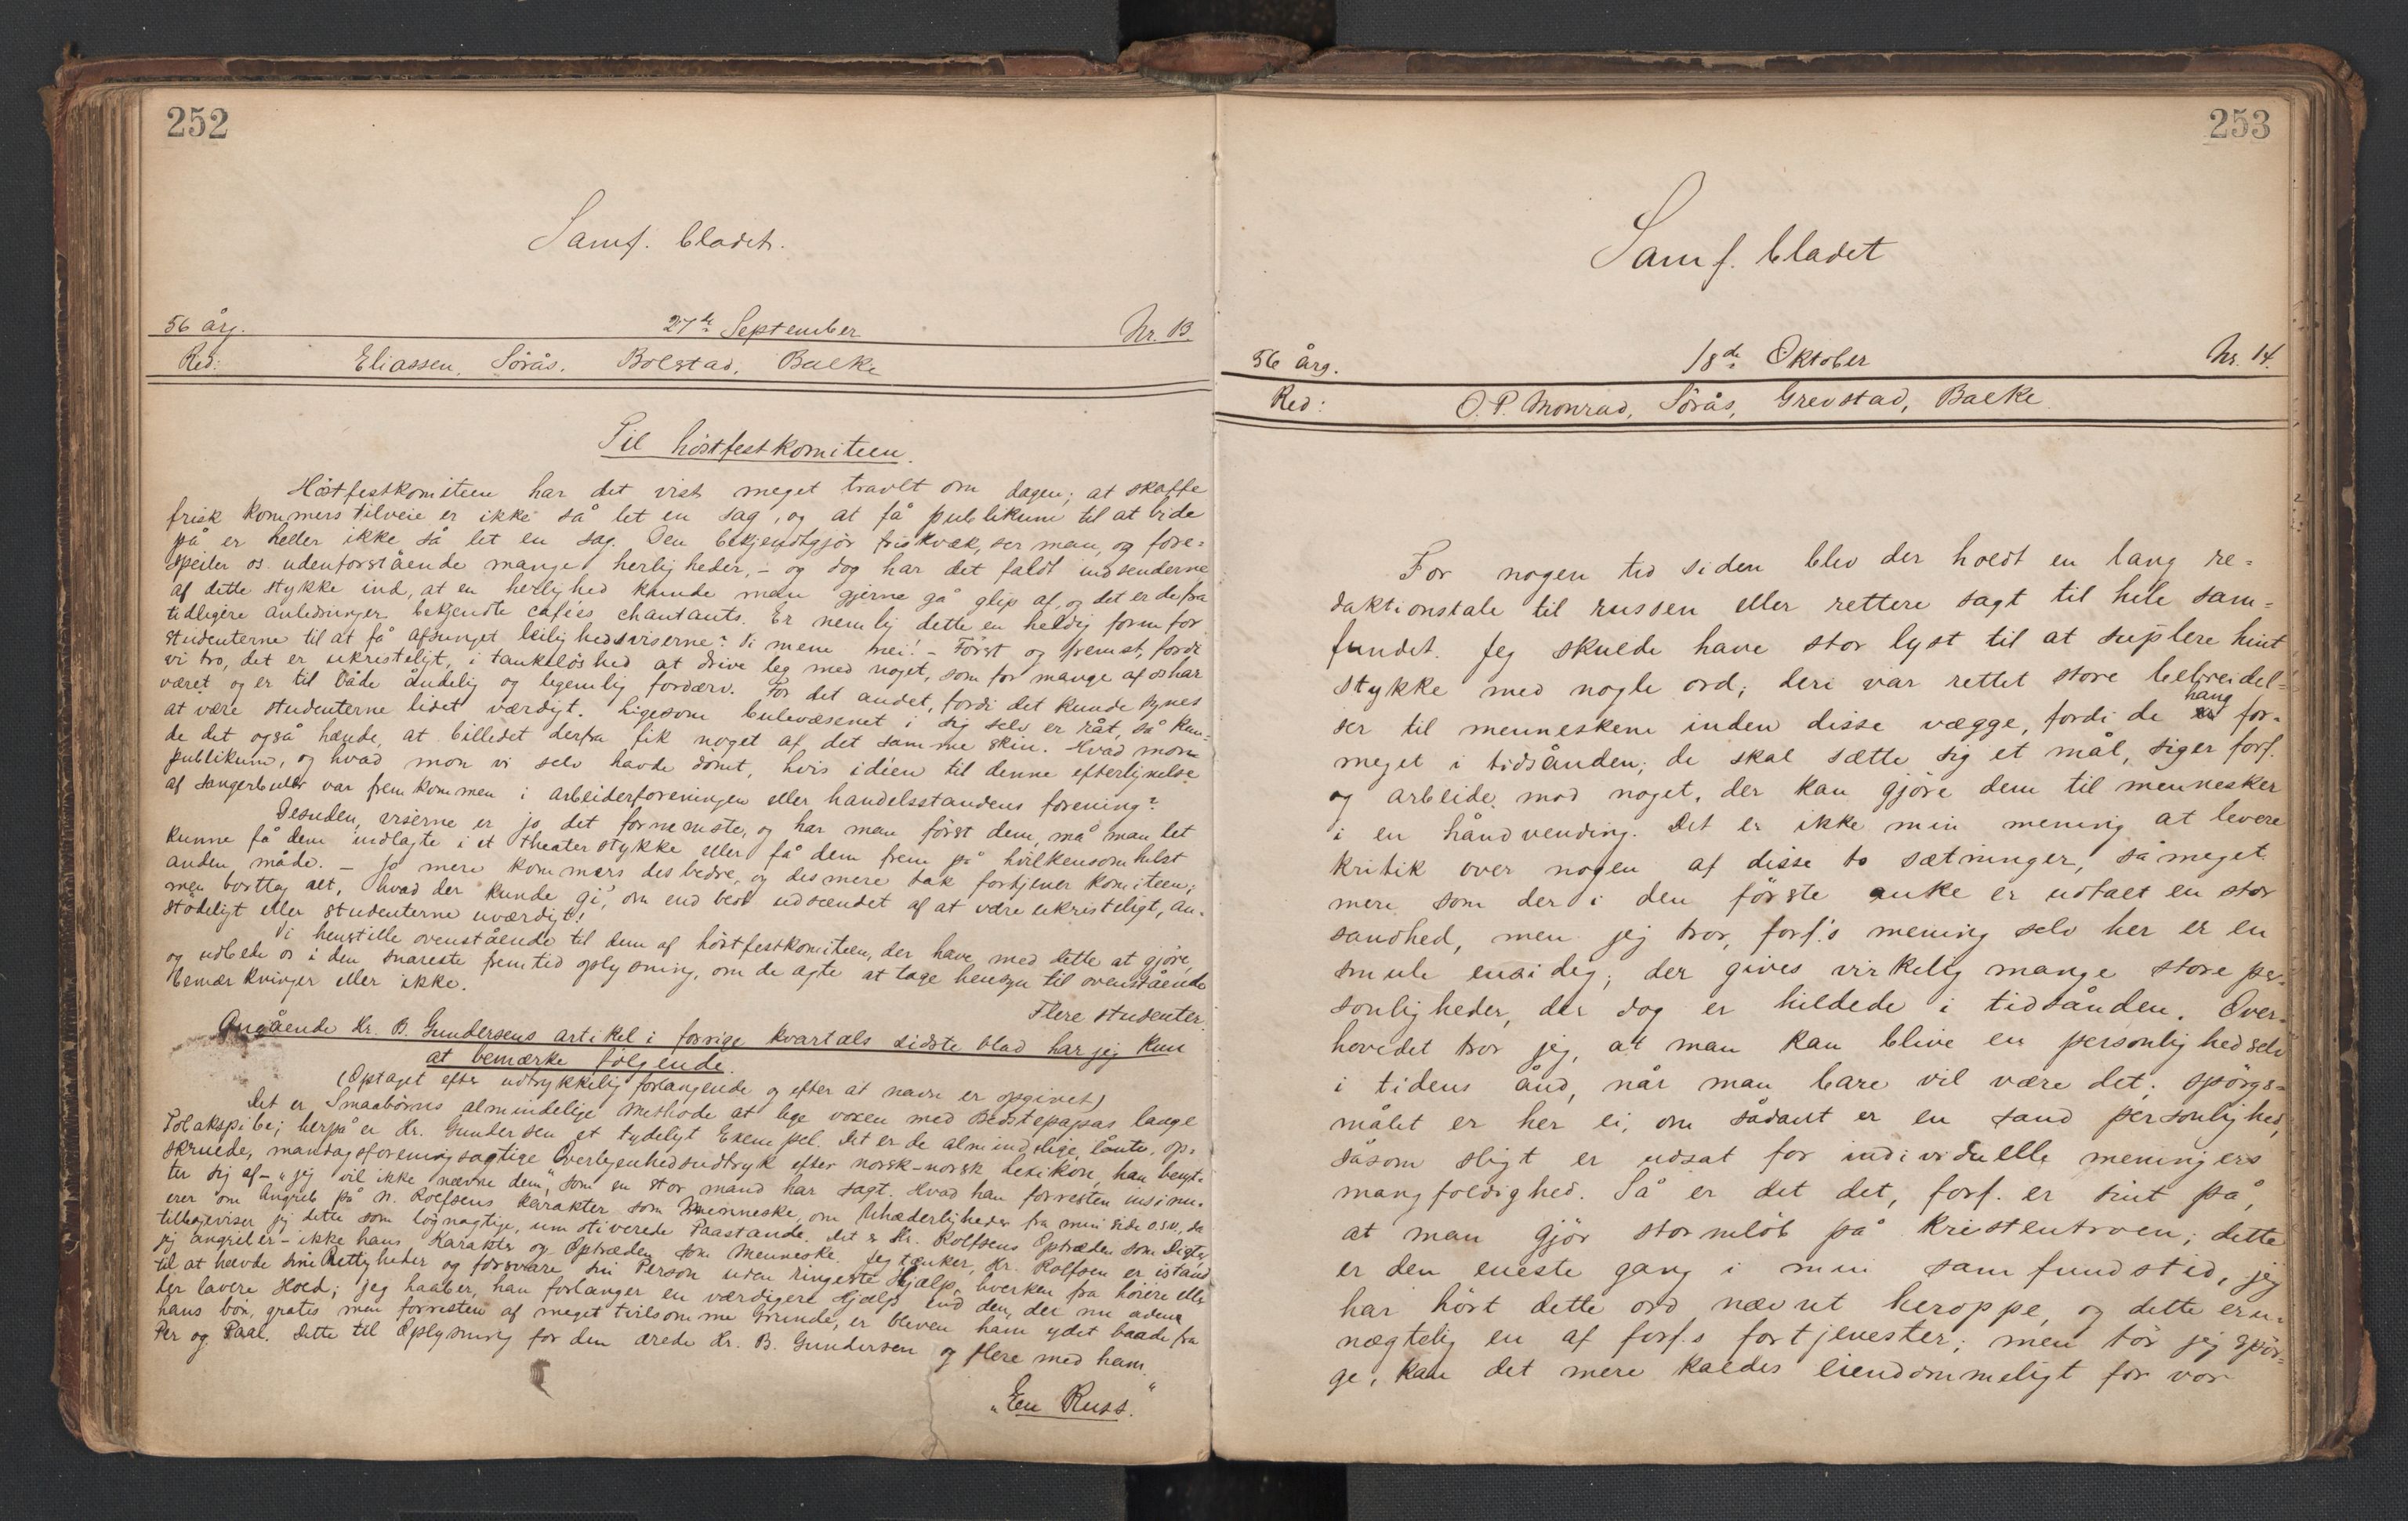 252
Samf. bladet.
56 årg. 27de September Nr. 13.
Red: Eliassen, Sörås, Bolstad, Balke
Til höstfestkomiteen.
Höstfestkomiteen har det vist meget travlt om dagen; at skaffe
frisk kommers tilveie er ikke så let en sag, og at få publikum til at bide
på er heller ikke så let en sag. Den bekjendtgjör friskvæk, ser man, og fore=
speiler os udenforstående mange herligheder, – og dog har det faldt indsenderne
af dette stykke ind, at en herlighed kunde man gjerne gå glip af, og det er de fra
tidligere anledninger bekjendte cafées chantants. Er nemlig dette en heldig form for
studenterne til at få afsunget leilighedsviserne? Vi mene nei! – Först og fremst, fordi
vi tro, det er ukristeligt, i tanklöshed at drive leg med noget, som for mange af os har
været og er til både åndelig og legemlig fordærv. For det andet, fordi det kunde synes
at være studenterne lidet værdigt. Ligesom bulevæsenet i sig selv er råt, så kun=
de det også hænde, at billedet derfra fik noget af det samme skin. Hvad mon
publikum, og hvad mon vi selv havde dömt, hvis idéen til denne efterlignelse
af sangerbuler var fremkommen i arbeiderforeningen eller handelsstandens forening?
Desuden, viserne er jo det fornemste, og har man först dem, må man let
kunne få dem indlagte i et theaterstykke eller få dem frem på hvilkensomhelst
anden måde. – Jo mere kommers des bedre, og desmere tak fortjener komiteen;
men borttag alt, hvad der kunde gi', om end blot udseendet af at være ukristeligt, an=
stödeligt eller studenterne uværdigt!
Vi henstille ovenstående til dem af höstfestkomiteen, der have med dette at gjöre,
og udbede os i den snareste fremtid oplysning, om de agte at tage hensyn til ovenstående
bemærkninger eller ikke.
Flere studenter.
Angående Hr. B. Gundersens artikel i forrige kvartals sidste blad har jeg kun
at bemærke fölgende.
(Optaget efter udtrykkelig forlangende og efter at navn er opgivet)
Det er Smaabörns almindelige Methode at lege voxen med Bedstepapas lange
Tobakspibe; herpå er Hr. Gundersen et tydeligt Exempel. Det er de almindelige, lånte, op=
skruede, mandagsforeningsagtige Overlegenhedsudtryk efter norsk-norsk Lexikon, han benyt=
ter sig af – "jeg vil ikke nævne dem", som en stor mand har sagt. Hvad han forresten insinu=
erer om Angreb på N. Rolfsens Karakter som Menneske, om Uhæderligheder fra min Side o.s.v., da
tilbageviser jeg dette som lögnagtige, umotiverede Paastande. Det er Hr. Rolfsens Optræden som Digter,
jeg angriber – ikke hans Karakter og Optræden som Menneske. Jeg tænker, Hr. Rolfsen er istand
til at hævde sine Rettigheder og forsvare sin Person uden ringeste Hjælp, hverken fra höiere eller
lavere Hoed; jeg haaber, han forlanger en værdigere Hjælp end den, der nu uden
hans bön, gratis men forresten af meget tvilsomme Grunde, er bleven ham ydet baade fra
Per og Paal. Dette til Oplysning for den ærede Hr. B. Gundersen og flere med ham.
"En Russ."
253
Samf. bladet
56 årg. 18de Oktober Nr. 14.
Red: O. P. Monrad, Sörås, Grevstad, Balke
For nogen tid siden blev der holdt en lang re=
daktionstale til russen eller rettere sagt til hele sam=
fundet. Jeg skulde have stor lyst til at suplere hint
stykke med nogle ord; deri var rettet store bebreidel=
ser til menneskene inden disse vægge, fordi de hang for=
meget i tidsånden; de skal sætte sig et mål, siger forf.
og arbeide mod noget, der kan gjöre dem til mennesker
i en håndvending. Det er ikke min mening at levere
kritik over nogen af disse to sætninger, så meget
mere som der i den förste anke er udtalt en stor
sandhed, men jeg tror, forf.'s mening selv her er en
smule ensidig; der gives virkelig mange store per=
sonligheder, der dog er hildede i tidsånden. Over=
hovedet tror jeg, at man kan blive en personlighed selv
i tidens ånd, når man bare vil være det; spörgs=
målet er her ei, om sådant er en sand personlighed,
såsom sligt er udsat for individuelle meningers
mangfoldighed. Så er det det, forf. er sint på,
at man gjör stormlöb på kristentroen; dette
er den eneste gang i min samfundstid, jeg
har hört dette ord nævnt heroppe, og dette er u=
nægtelig en af forf.s fortjenester; men tör jeg spör=
ge, kan det mere kaldes eiendommeligt for vor